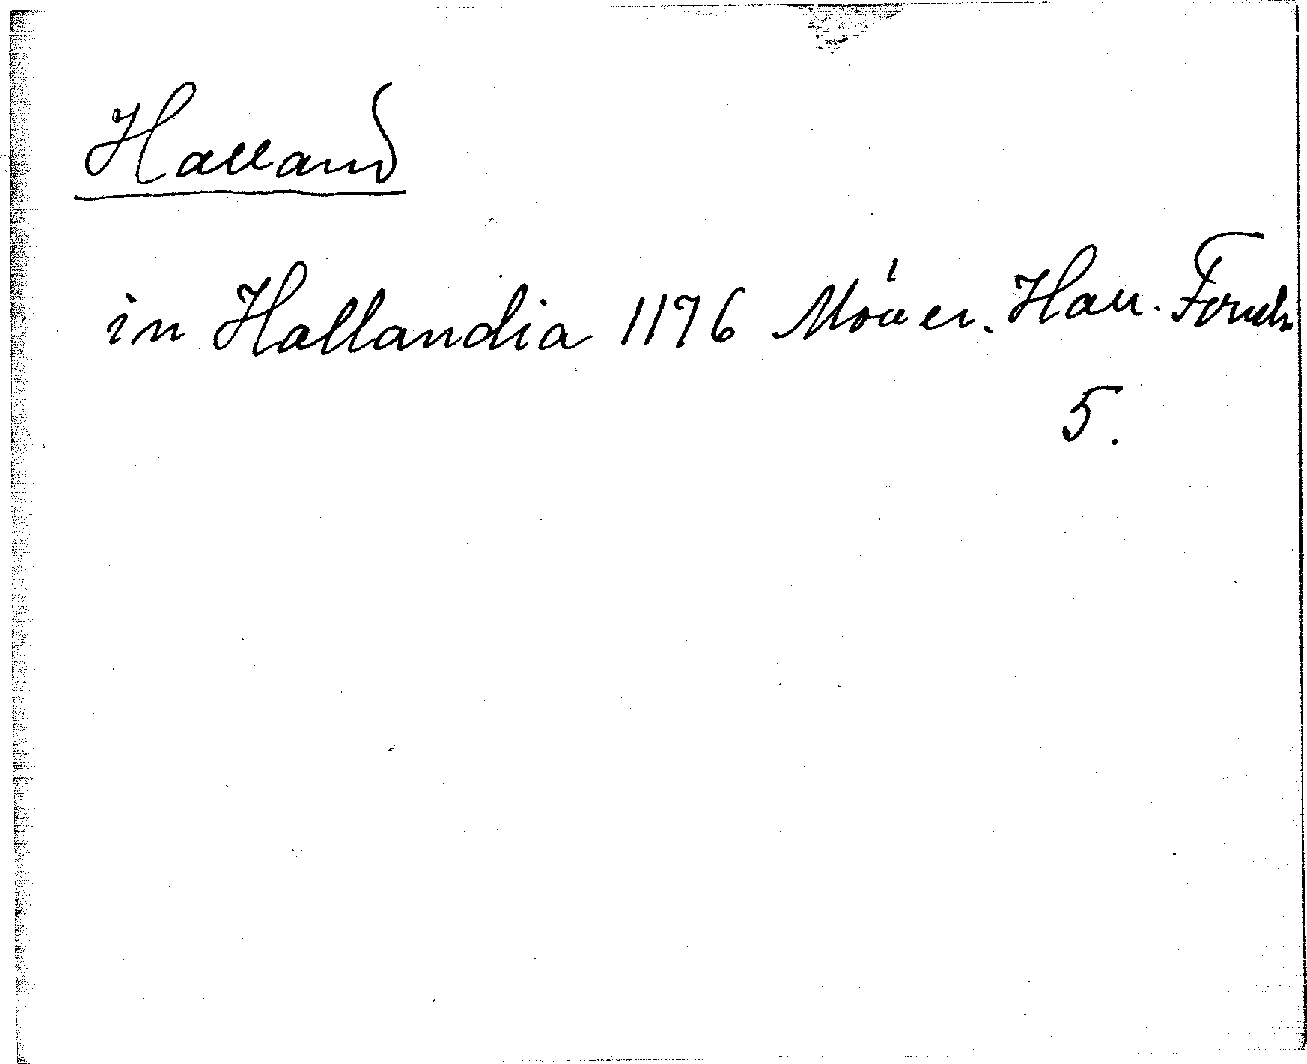 Halland
in Hallandia 1176 Möller. Hall. Foruds
5.